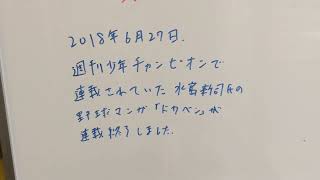 2018年6月27日.
週刊少年チャンピオンで
連載されていた水島新司氏の
野球マンガ「ドカベン」が
連載終了しました.